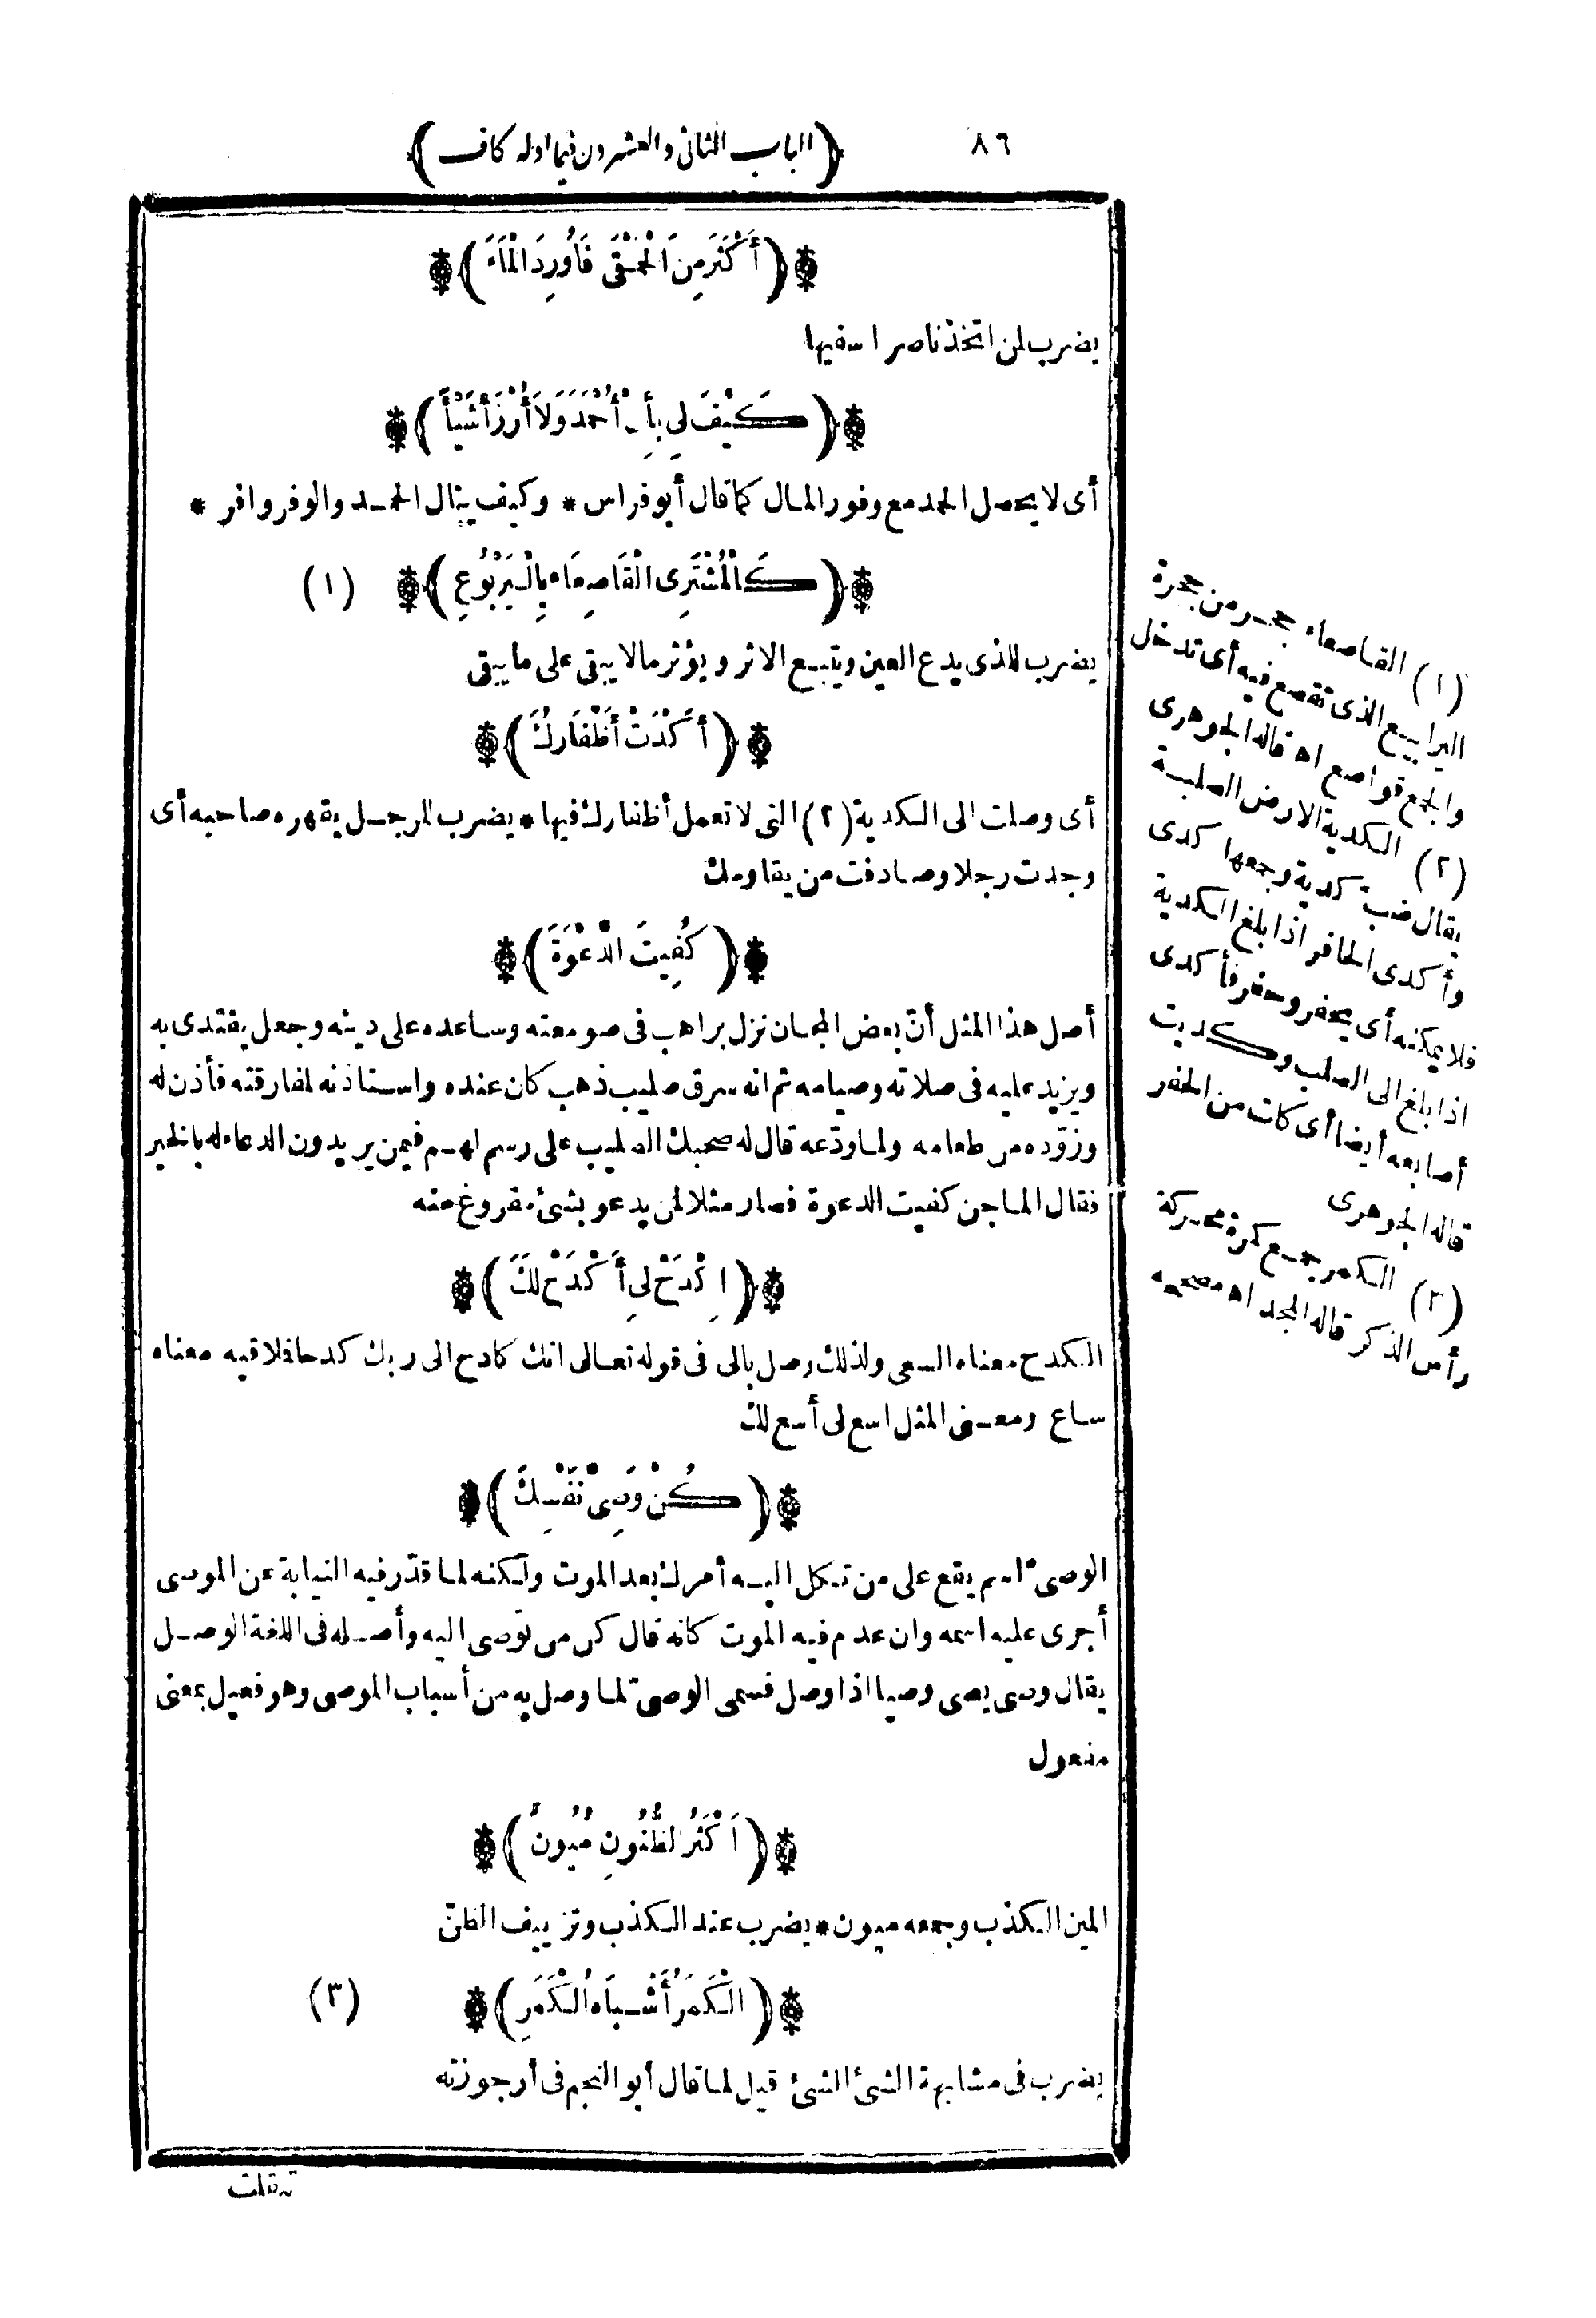 ٨٦
﴿الباب الثانى والعشرون فيما اوله كاف﴾
﴿أَكْثَرَ مِنَ الْحَمْقَى فَأُورِدَ الْمَاءَ﴾
يضرب لمن اتخذ ناصرا سفيها
﴿كَيْفَ لِي بِأَنْ أُحْمَدَ وَلَا أُرْزَأَ شَيْأً﴾
أى لا يحصل الحمد مع وفور المال كما قال أبو فراس * وكيف ينال الحمد والوفر وافر *
﴿كَالْمُشْتَرِى الْقَاصِعَاءَ بِالْيَرْبُوعِ﴾ (١)
يضرب للذى يدع العين ويتبع الاثر ويؤثر مالا يبقى على ما يبقى
﴿أَكْدَتْ أَظْفَارُكَ﴾
أى وصلت الى الكدية (٢) التى لا تعمل أظفارك فيها * يضرب للرجل يقهره صاحبه أى
وجدت رجلا وصادفت من يقاومك
﴿كُفِيتَ الدَّعْوَةَ﴾
أصل هذا المثل أنّ بعض المجان نزل براهب فى صومعته وساعده على دينه وجعل يقتدى به
ويزيد عليه فى صلاته وصيامه ثم انه سرق صليب ذهب كان عنده واستاذنه لمفارقته فأذن له
وزوّده من طعامه ولما ودّعه قال له صحبك الصليب على رسم لهم فيمن يريدون الدعاء له بالخير
فقال الماجن كفيت الدعوة فصار مثلا لمن يدعو بشئ مفروغ منه
﴿اِكْدَحْ لِي أَكْدَحْ لَكَ﴾
الكدح معناه السعى ولذلك وصل بالى فى قوله تعالى انك كادح الى ربك كدحا فملاقيه معناه
ساع ومعنى المثل اسع لى أسع لك
﴿كُنْ وَصِىَّ نَفْسِكَ﴾
الوصىّ اسم يقع على من تكل اليه أمرك بعد الموت ولكنه لما قدّر فيه النيابة عن الموصى
أجرى عليه اسمه وان عدم فيه الموت كانه قال كن من توصى اليه وأصله فى اللغة الوصل
يقال وصى يصى وصيا اذا وصل فسمى الوصىّ لما وصل به من أسباب الموصى وهو فعيل بمعنى
مفعول
﴿أَكْثَرُ الظُّنُونِ مُيُونٌ﴾
المين الكذب وجمعه ميون * يضرب عند الكذب وتزييف الظنّ
﴿الْكَمَرُ أَشْبَاهُ الْكَمَرِ﴾ (٣)
يضرب فى مشابهة الشئ الشئ قيل لما قال أبو النجم فى أرجوزته
تبقلت
(١) القاصعاء جحر من جحرة
اليرابيع الذى تقصع فيه أى تدخل
والجمع قواصع اه قاله الجوهرى
(٢) الكدية الارض الصلبة
يقال ضب كدية وجمعها كدى
وأكدى الحافر اذا بلغ الكدية
فلا يمكنه أى يحفر وحفر فأكدى
اذا بلغ الى الصلب وكديت
أصابعه أيضا أى كلت من الحفر
قاله الجوهرى
(٣) الكمر جمع كمرة محركة
رأس الذكر قاله المجد اه مصححه